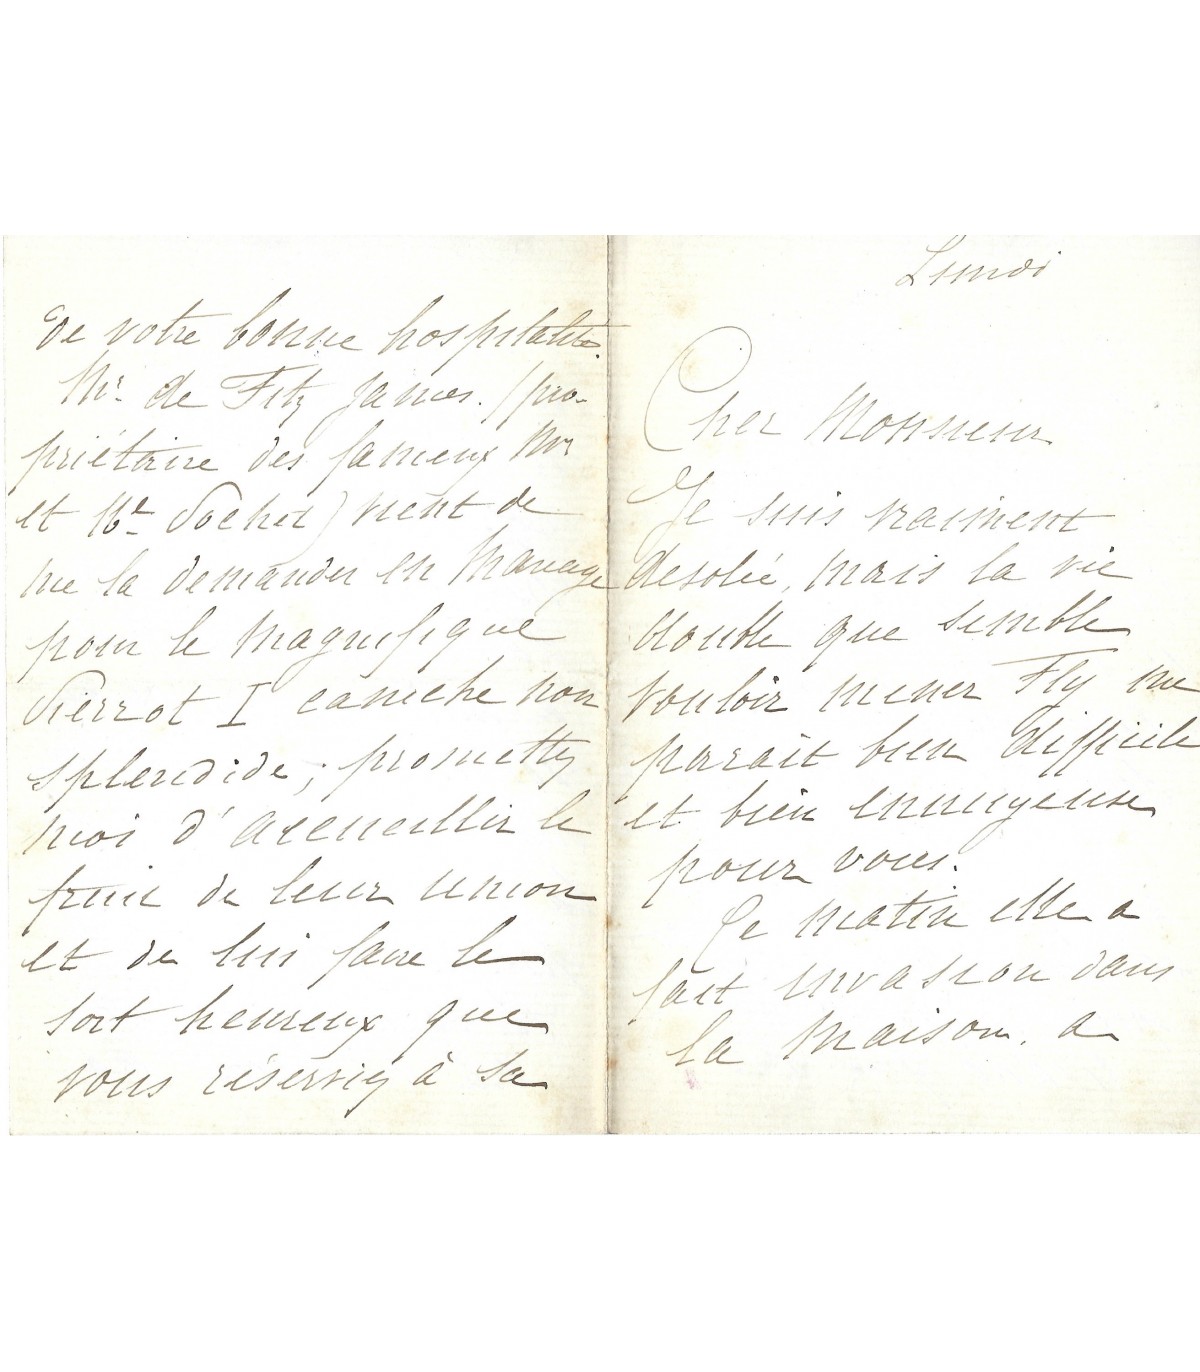 Lundi
Cher Monsieur
Je suis vraiment
desolée, mais la vie
double que semble
vouloir mener Fly me
parait bien difficile
et bien ennuyeuse
pour vous.
Ce matin elle a
fait invasion dans
la maison. a
de votre bonne hospitalité.
Mr. de Fitz James. (pro-
priétaire des fameux Mr
et Me ) vient de
me la demander en Mariage
pour le magnifique
Pierrot I caniche non
splendide ; promettez
moi d'accueillir le
fruit de leur union
et de lui faire le
sort heureux que
vous réserviez à sa